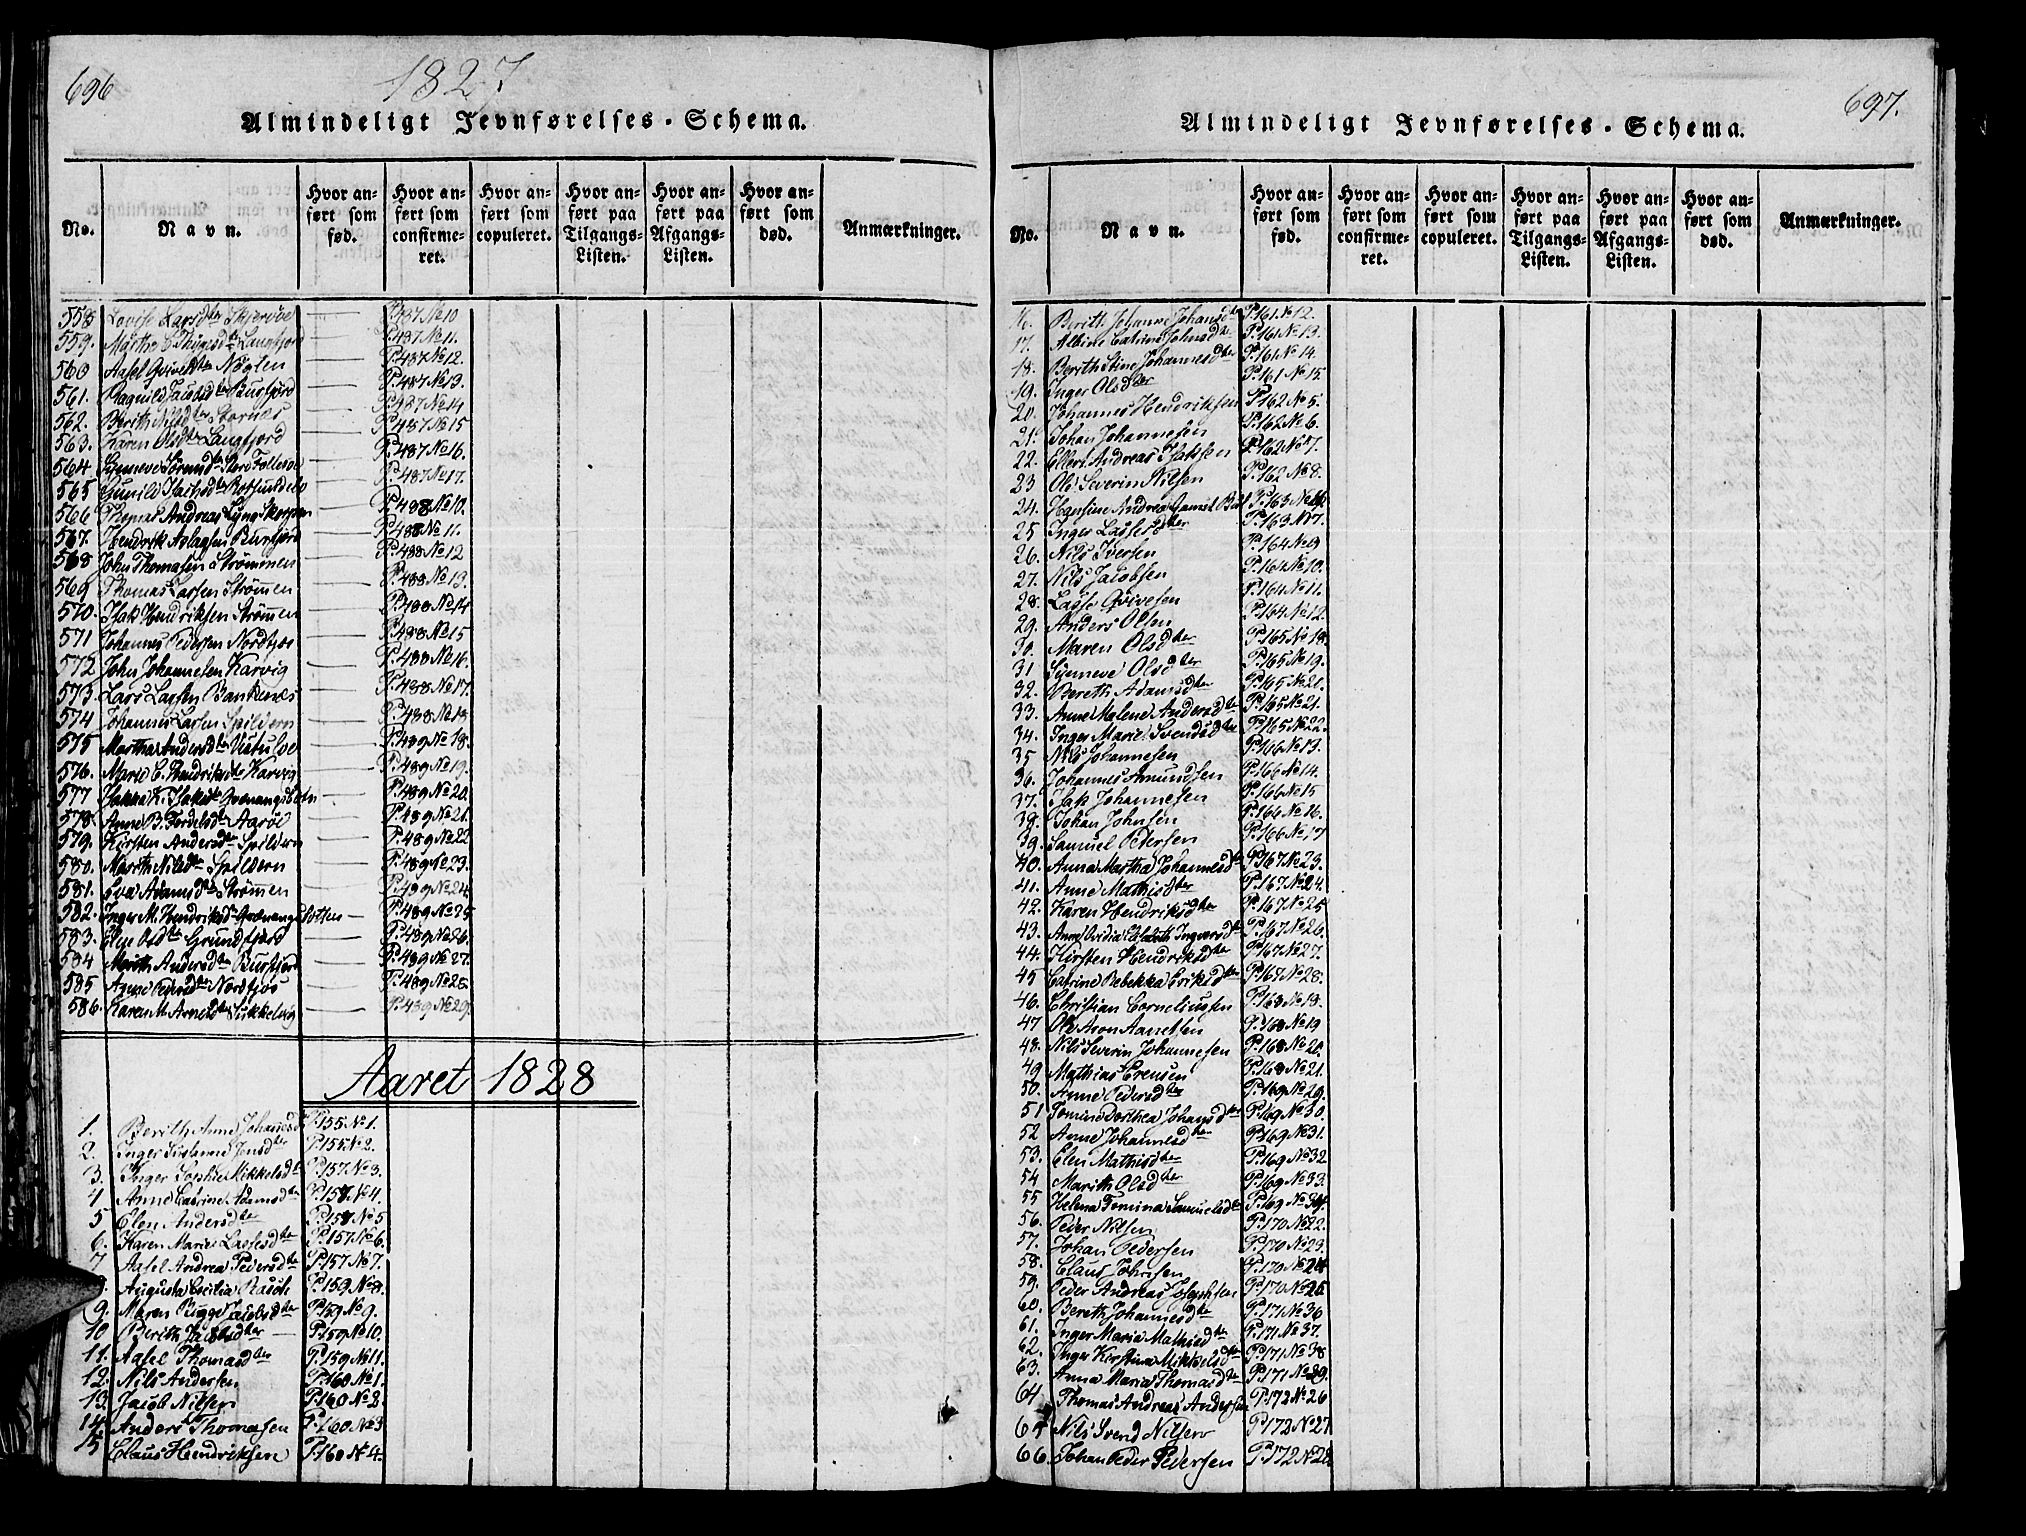 696
1827
Almindeligt Jevnførelses-Schema.
No.
Navn.
Hvor anført som fød.
Hvor anført som confirmeret.
Hvor anført som copuleret.
Hvor anført paa Tilgangs-Listen.
Hvor anført paa Afgangs-Listen.
Hvor anført som død.
Anmærkninger.
558 Lovise Larsdter Skjervöe P.487 No 10
559. Marthe E Thomasdtr Langfjord P.487 No 11.
560 Aasel Qvivelsdtr Nöglen P.487 No 12.
561. Ragnild Jacobsdtr Burfjord P.487 No 13.
562. Berith Nilsdter Stornes P.487 No 14
563. Karen Olsdtr Langfjord P.487 No 15
564 Synneve P.487 No 16.
565 Gunild Rotsundelv P.487 No 17.
566 Thomas Andreas Lyng Skorpen P.488 No 10.
567. Hendrik Aslagsen Burfjord P.488 No 11.
568 John Thomasen Strömmen P.488 No 12
569 Thomas Larsen Strömen P.488 No 13.
570. Isak Hendriksen Strömmen P.488 No 14
571 Johannes Pedersen Nordfjos P.488 No 15
572 John Johannesen Karvig P.488 No 16.
573. Lars Larsen Bankenes P.488 No 17.
574 Johannes Larsen Spildern P.488 No 18
575 Martha Andersdtr P.489 No 18.
576. Marie E. Hendriksdtr Karvig P.489 No 19.
577 Qvænangsbotn P.489 No 20.
578. Anne B. Aaröe P.489 No 21.
579. Kirsten Andersdtr Spildern P.489 No 22
580. Marith Nilsdtr Spildern P.489 No 23.
581. Eva Adamsdtr Strömen P.489 No 24.
582. Inger M. Hendriksdtr Qvænangsbotten P.489 No 25
583. Elge Olsdtr Grundfjord P.489 No 26.
584 Marith Andersdtr Burfjord P.489 No 27.
585 Anne Nordfjos P.489 No 28.
586. Karen M. Arnesdtr P.489 No 29.
Aaret 1828
1. Berith Anne Johanesd P.155 No 1.
2. Inger Susanne Jonsdter P.155 No 2.
3. Inger Sophie Mikkelsdtr P.157 No 3.
4 Anne Catrine Adamsdter P.157 No 4.
5 Elen Andersdter P.157 No 5
6. Karen Marie Lassesdter P.157 No 6.
7 Aasel Andrea Pedersdter P.157 No 7.
8. Augusta Cecilia Rasch P.159 No 8.
9. Maren Birgge Jacobsdter P.159 No 9.
10 Berith P.159 No 10.
11. Aasel Thomasdter P.159 No 11.
12. Nils Andersen P.160 No 1.
13. Jacob Nilsen P.160 No 2
14 Anders Thomasen P.160 No 3
15 Claus Hendriksen P.160 No 4.
697.
Almindeligt Jevnførelses-Schema.
No.
Navn.
Hvor anført som fød.
Hvor anført som confirmeret.
Hvor anført som copuleret.
Hvor anført paa Tilgangs-Listen.
Hvor anført paa Afgangs-Listen.
Hvor anført som død.
Anmærkninger.
16. Berith Johanne Johansdter P.161 No 12.
17. Albine Catrine Johnsdter P.161 No 13.
18. Berith Stine Johannesdter P.161 No 14.
19. Inger Olsdter P.161 No 15.
20. Johannes Hendriksen P.162 No 5.
21. Johan Johannesen P.162 No 6.
22. Ellert Andreas Isaksen P.162 No 7.
23 Ole Severin Nilsen P.162 No 8.
24. Hansine Andrea P.163 No 16.
25 Inger Lassesdter P.163 No 17.
26. Nils Iversen P.164 No 9
27. Nils Jacobsen P.164 No 10.
28. Lasse Qvivesen P.164 No 11.
29. Anders Olsen P.164 No 12.
30. Maren Olsdter P.165 No 18.
31 Synneve Olsdter P.165 No 19.
32. Bereth Adamsdter P.165 No 21.
33. Anne Malene Andersdter P.165 No 21.
34. Inger Marie Svendsdter P.165 No 22.
35 Nils Johannesen P.166 No 13.
36. Johannes Amundsen P.166 No 14.
37. Isak Johannesen P.166 No 15
38. Johan Johnsen P.166 No 16.
39. Samuel Petersen P.166 No 17
40. Anna Martha Johannesdter P.167 No 23.
41. Anne Mathisdter P.167 No 24.
42. Karen Hendriksdter P.167 No 25
43. Anne Ovidia Elisabeth Ingversdter P.167 No 26.
44. Kirsten Hendriksdter P.167 No 27.
45 Catrine Rebekka Eriksdter P.167 No 28.
46. Christian Corneliussen P.168 No 18.
47 Ole Aron Aanetsen P.168 No 19
48. Nils Severin Johannesen P.168 No 20.
49 Mathias Ereusen P.168 No 21.
50. Anne Pedersdter P.169 No 29.
51 Tomine Dorthea Johansdter P.169 No 30.
52 Anne Johannesdter P.169 No 31.
53. Elen Mathisdter P.169 No 32
54 Marith Olsdter P.169 No 33.
55 Helena Tomina Samuelsdter P.169 No 34.
56. Peder Nilsen P.170 No 22.
57. Johan Pedersen P.170 No 23.
58. Claus Johnsen P.170 No 24
59. Peder Andreas Josephsen P.170 No 25
60. Berith Johannesdter P.171 No 36
61. Inger Maria Mathisdter P.171 No 37.
62. Inger Kirstina Mikkelsdtr P.171 No 38
63. Anna Maria Thomasdter P.171 No 39.
64 Thomas Andreas Andersen P.172 No 26
65 Nils Svend Nilsen P.172 No 27
66. Johan Peder Pedersen P.172 No 28